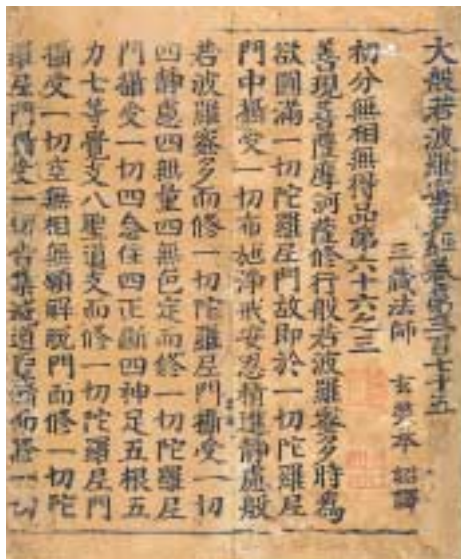 大般若波羅蜜多經卷第三百七十五
三藏法師 玄奘奉 詔譯
初分無相無得品第六十六之三
善現菩薩摩訶薩修行般若波羅蜜多時為
欲圓滿一切陀羅尼門故即於一切陀羅尼
門中攝受一切布施淨戒安忍精進靜慮般
若波羅蜜多而修一切陀羅尼門攝受一切
四靜慮四無量四無色定而修一切陀羅尼
門攝受一切四念住四正斷四神足五根五
力七等覺支八聖道支而修一切陀羅尼門
攝受一切空無相無願解脫門而修一切陀
羅尼門攝受一切苦集滅道聖諦而修一切